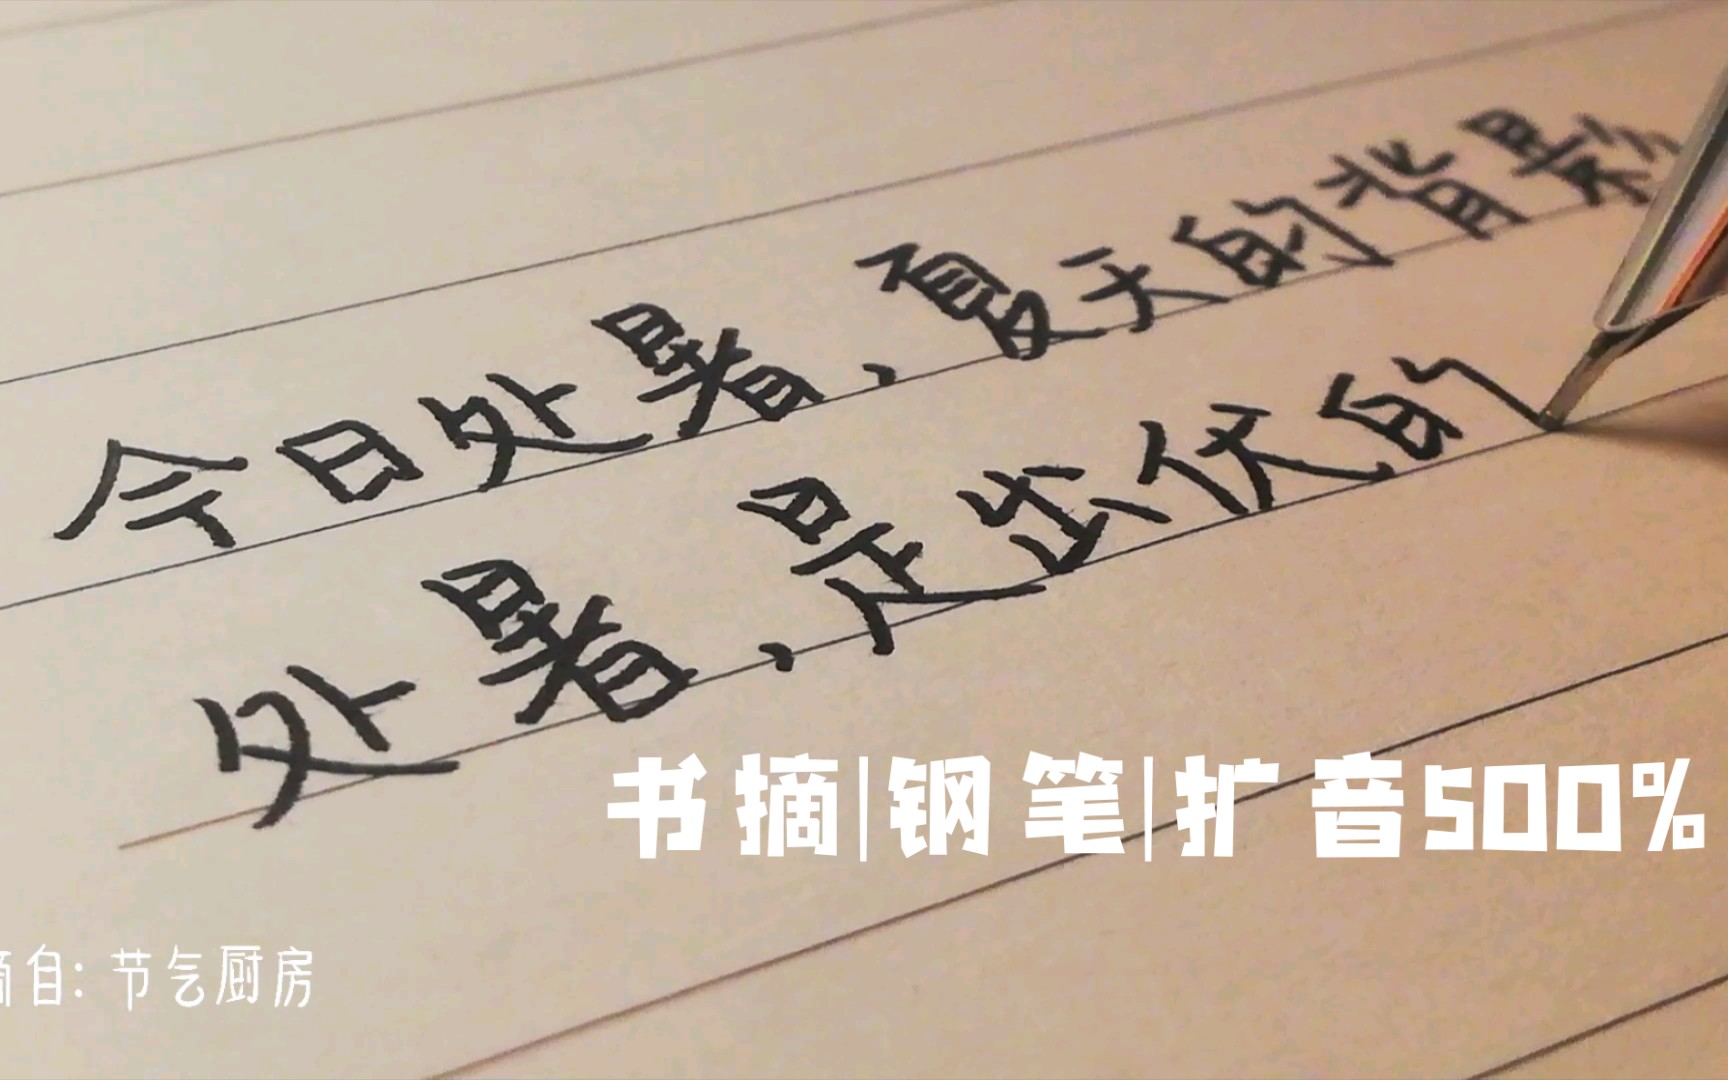 今日处暑,夏天的背影
处暑,是出伏的
书摘|钢笔|扩音500%
摘自:节气厨房